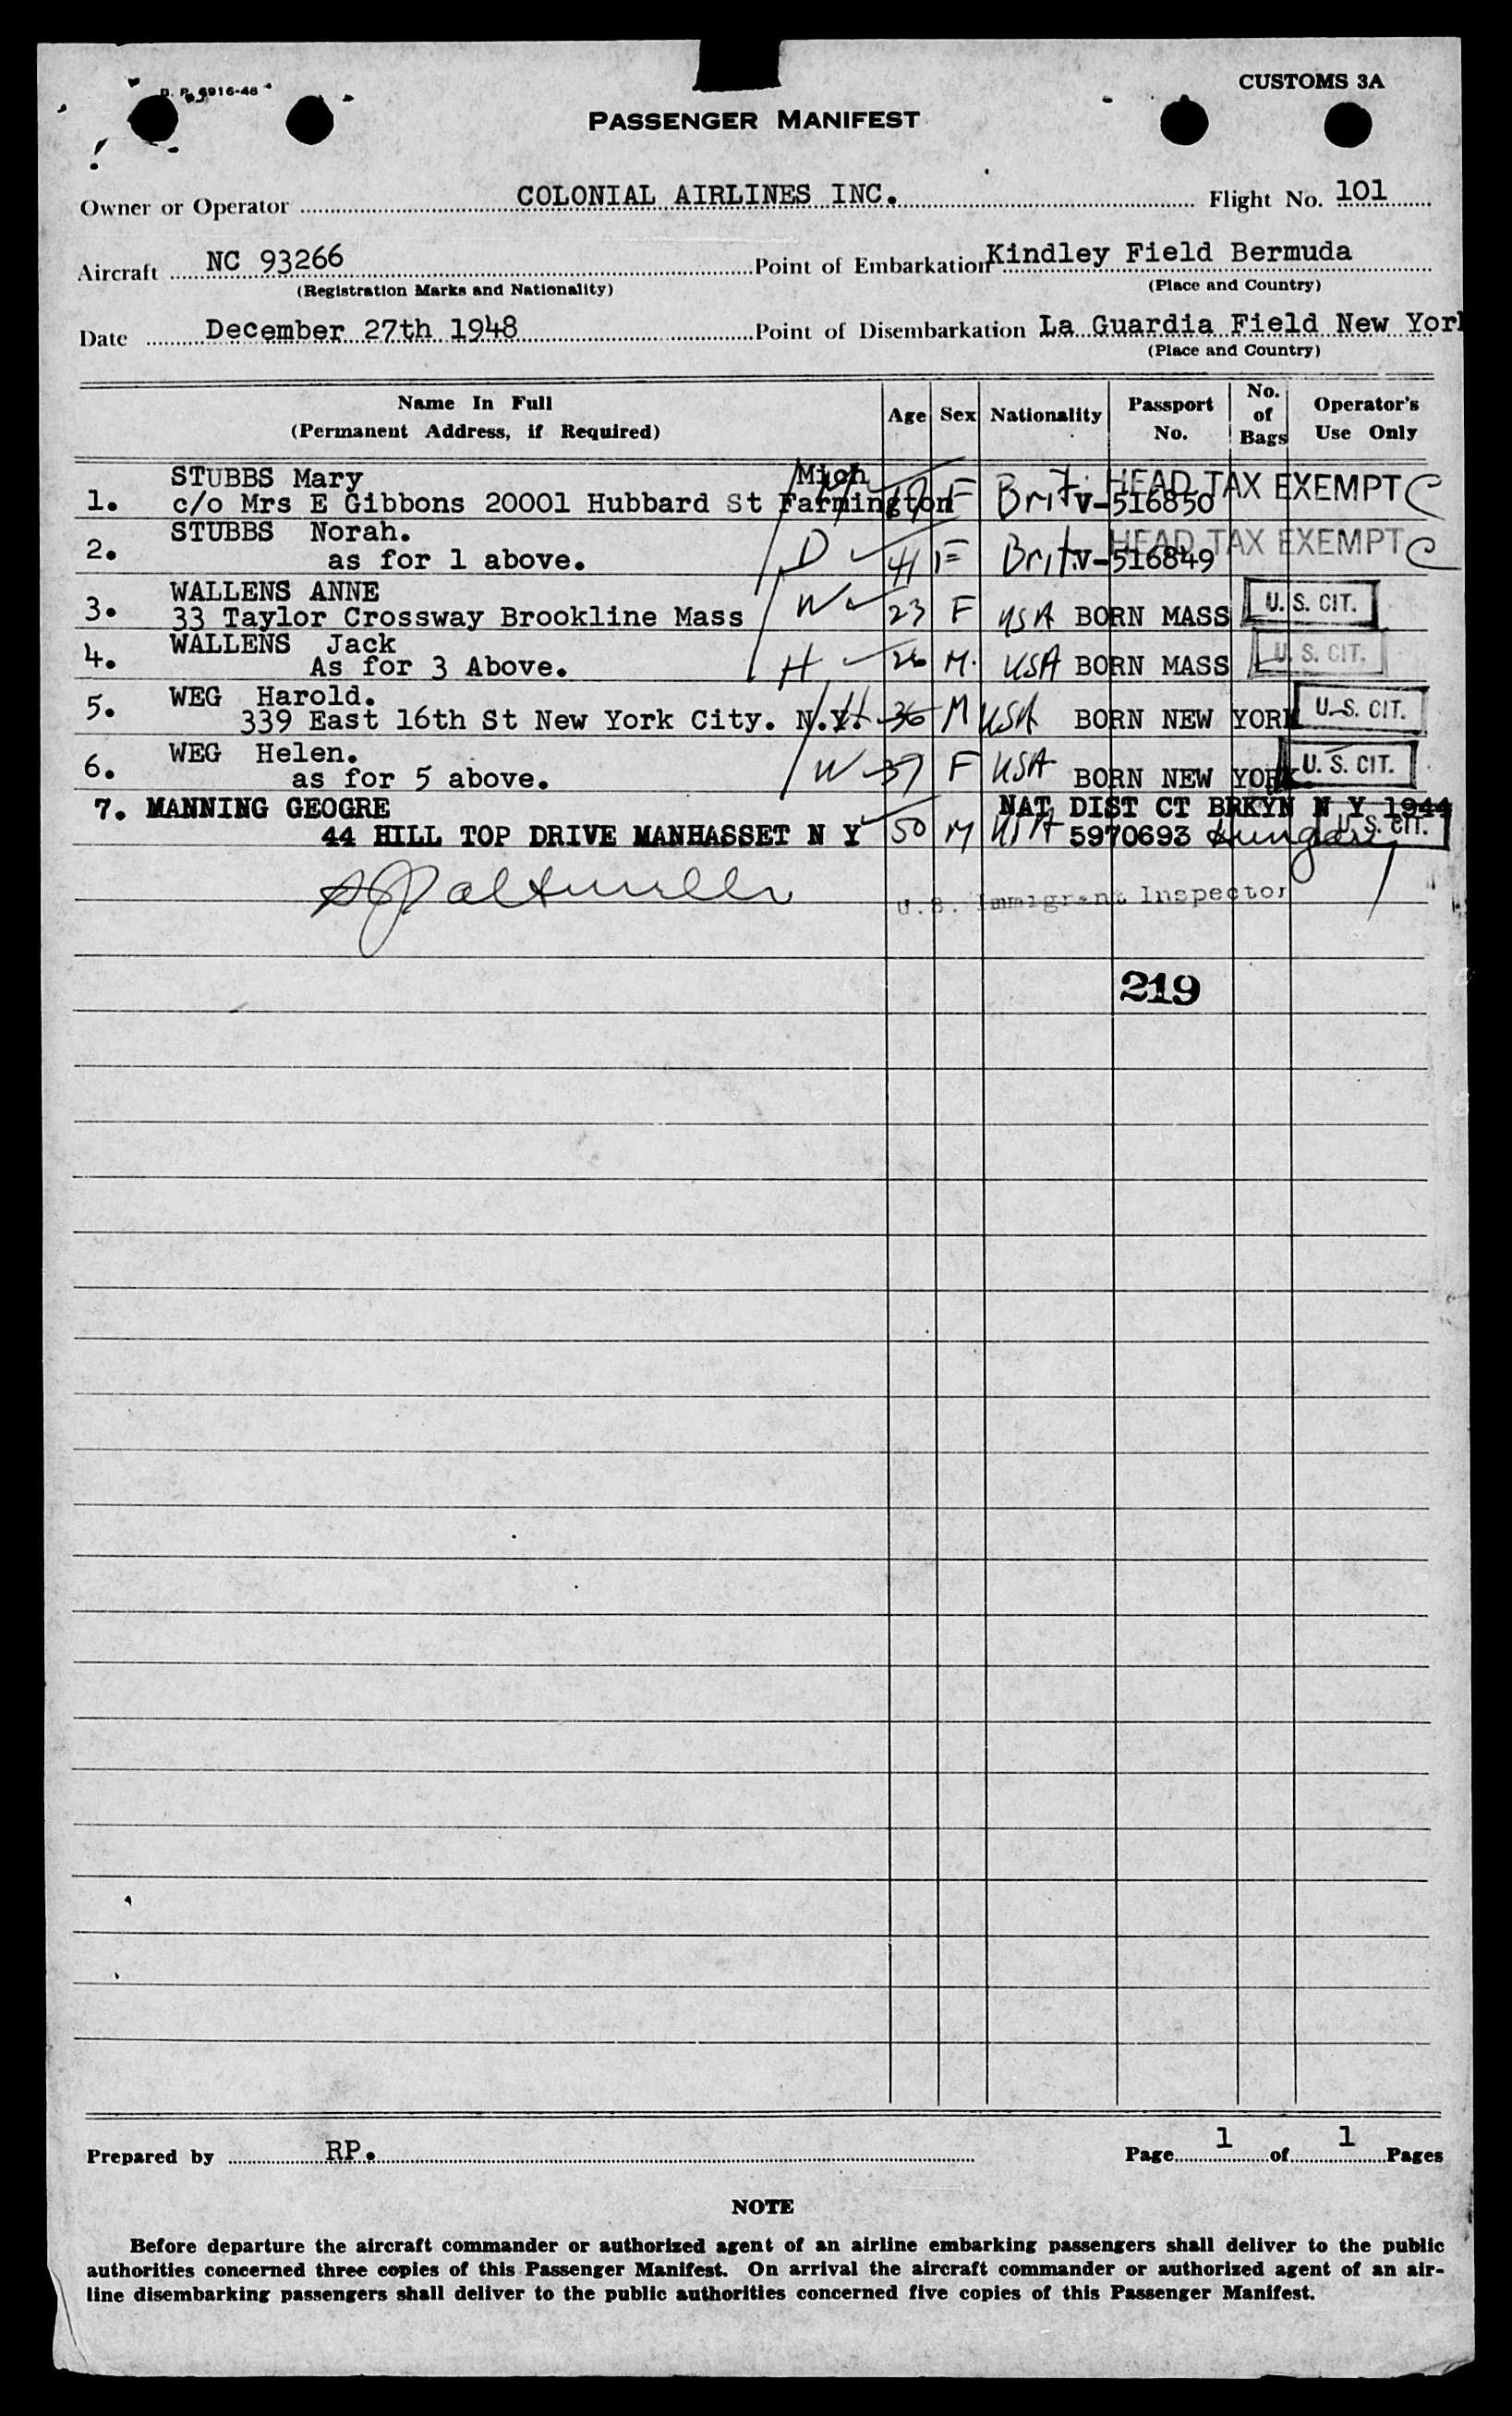 CUSTOMS 3A
PASSENGER MANIFEST
Owner or Operator COLONIAL AIRLINES INC. Flight No. 101
Aircraft NC 93266 Point of Embarkation Kindley Field Bermuda
(Registration Marks and Nationality) (Place and Country)
Date December 27th 1948 Point of Disembarkation La Guardia Field New York
(Place and Country)
Name In Full (Permanent Address, if Required) Age Sex Nationality Passport No. No. of Bags Operator's Use Only
STUBBS Mary Mich HEAD TAX EXEMPT C
1. c/o Mrs E Gibbons 20001 Hubbard St Farmington F Brit V-516850
STUBBS Norah. HEAD TAX EXEMPT C
2. as for 1 above. D 41 F Brit V-516849
WALLENS ANNE
3. 33 Taylor Crossway Brookline Mass W 23 F USA BORN MASS U.S. CIT.
WALLENS Jack
4. As for 3 Above. H 26 M. USA BORN MASS U.S. CIT.
WEG Harold.
5. 339 East 16th St New York City. N.Y. H 36 M USA BORN NEW YORK U.S. CIT.
WEG Helen.
6. as for 5 above. W 37 F USA BORN NEW YORK U.S. CIT.
7. MANNING GEOGRE NAT DIST CT BRKYN N Y 1944
44 HILL TOP DRIVE MANHASSET N Y 50 M USA 5970693 Hungary U.S. CIT.
U.S. Immigrant Inspector
219
Prepared by RP. Page 1 of 1 Pages
NOTE
Before departure the aircraft commander or authorized agent of an airline embarking passengers shall deliver to the public
authorities concerned three copies of this Passenger Manifest. On arrival the aircraft commander or authorized agent of an air-
line disembarking passengers shall deliver to the public authorities concerned five copies of this Passenger Manifest.